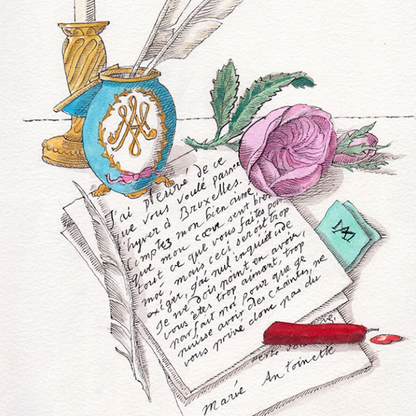 J'ai pleuré de ce
que vous voulé passer
l'hyver à Bruxelles.
Comptez mon bien aimé
que mon cœur sent bien
tout ce que vous faites pour
moi, mais ceci seroit trop
exiger, j'ai nul inquiétude
Je ne dois point en avoir,
vous êtes trop aimant, trop
parfait moi pour que je
puisse avoir des craintes, ne
vous prive donc pas du
Marie Antoinette
MA